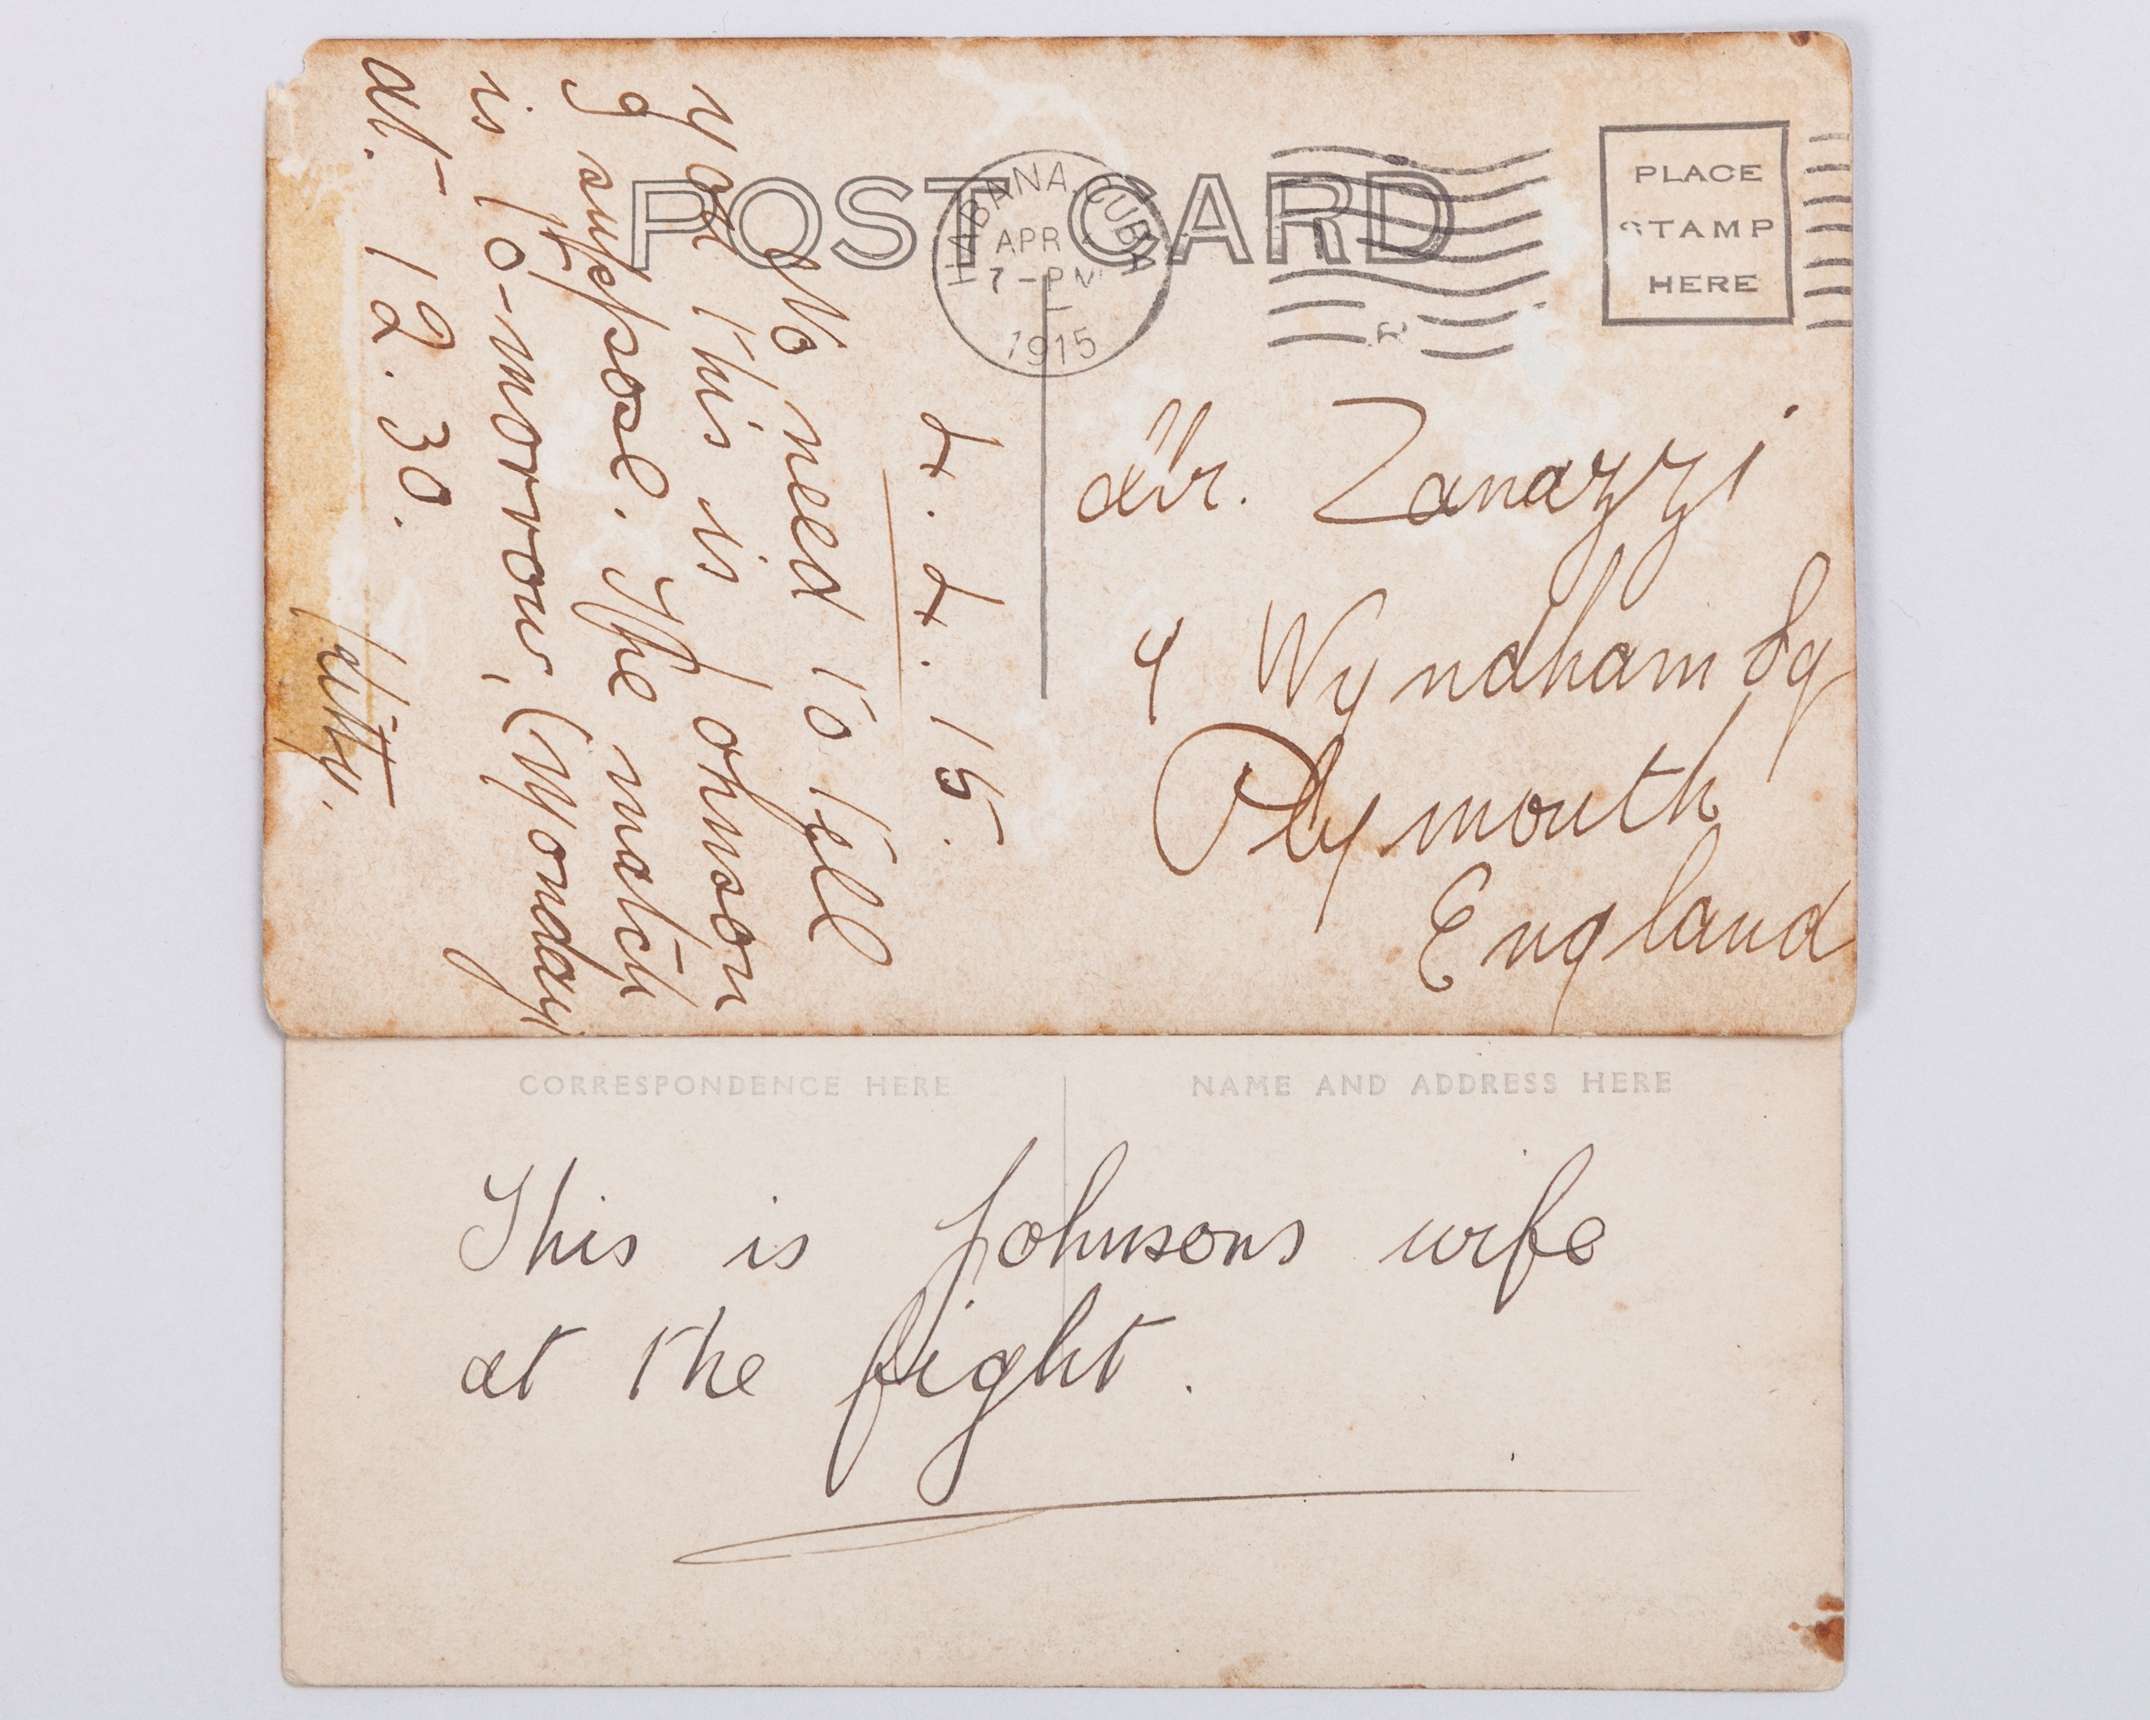 POST CARD
HABANA, CUBA
APR
7-PM
1915
PLACE
STAMP
HERE
4.4.15.
No need to tell
you this is Johnson
I suppose. The match
is to-morrow, (Monday
at. 12.30.
Mr. Zanazzi
4 Wyndham Sq
Plymouth
England
CORRESPONDENCE HERE
NAME AND ADDRESS HERE
This is Johnsons wife
at the fight.